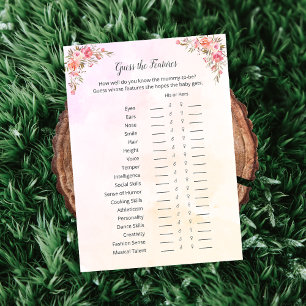 Guess the Features
How well do you know the mummy-to-be?
Guess whose features she hopes the baby gets.
His or Hers
Eyes ____ ♂ ♀ ____
Ears ____ ♂ ♀ ____
Nose ____ ♂ ♀ ____
Smile ____ ♂ ♀ ____
Hair ____ ♂ ♀ ____
Height ____ ♂ ♀ ____
Voice ____ ♂ ♀ ____
Temper ____ ♂ ♀ ____
Intelligence ____ ♂ ♀ ____
Social Skills ____ ♂ ♀ ____
Sense of Humor ____ ♂ ♀ ____
Cooking Skills ____ ♂ ♀ ____
Athleticism ____ ♂ ♀ ____
Personality ____ ♂ ♀ ____
Dance Skills ____ ♂ ♀ ____
Creativity ____ ♂ ♀ ____
Fashion Sense ____ ♂ ♀ ____
Musical Talent ____ ♂ ♀ ____